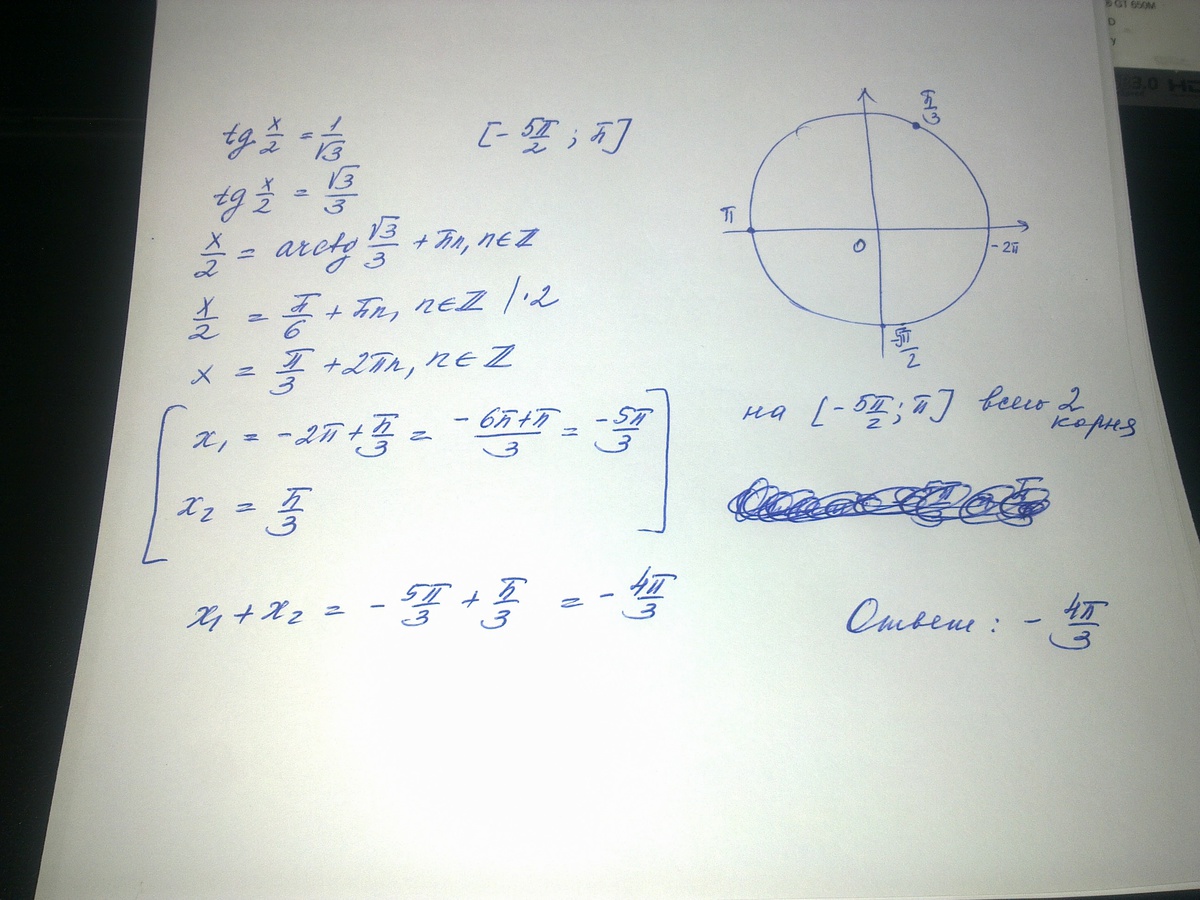 tg x/2 = 1/√3 [-5π/2; π]
tg x/2 = √3/3
x/2 = arctg √3/3 + πn, n∈ℤ
x/2 = π/6 + πn, n∈ℤ /·2
x = π/3 + 2πn, n∈ℤ
x₁ = -2π + π/3 = (-6π+π)/3 = -5π/3
x₂ = π/3
x₁ + x₂ = -5π/3 + π/3 = -4π/3
π/3
π
0
-2π
-5π/2
на [-5π/2; π] всего 2
корня
Ответ: -4π/3
G1 650M
D
y
3.0 HD